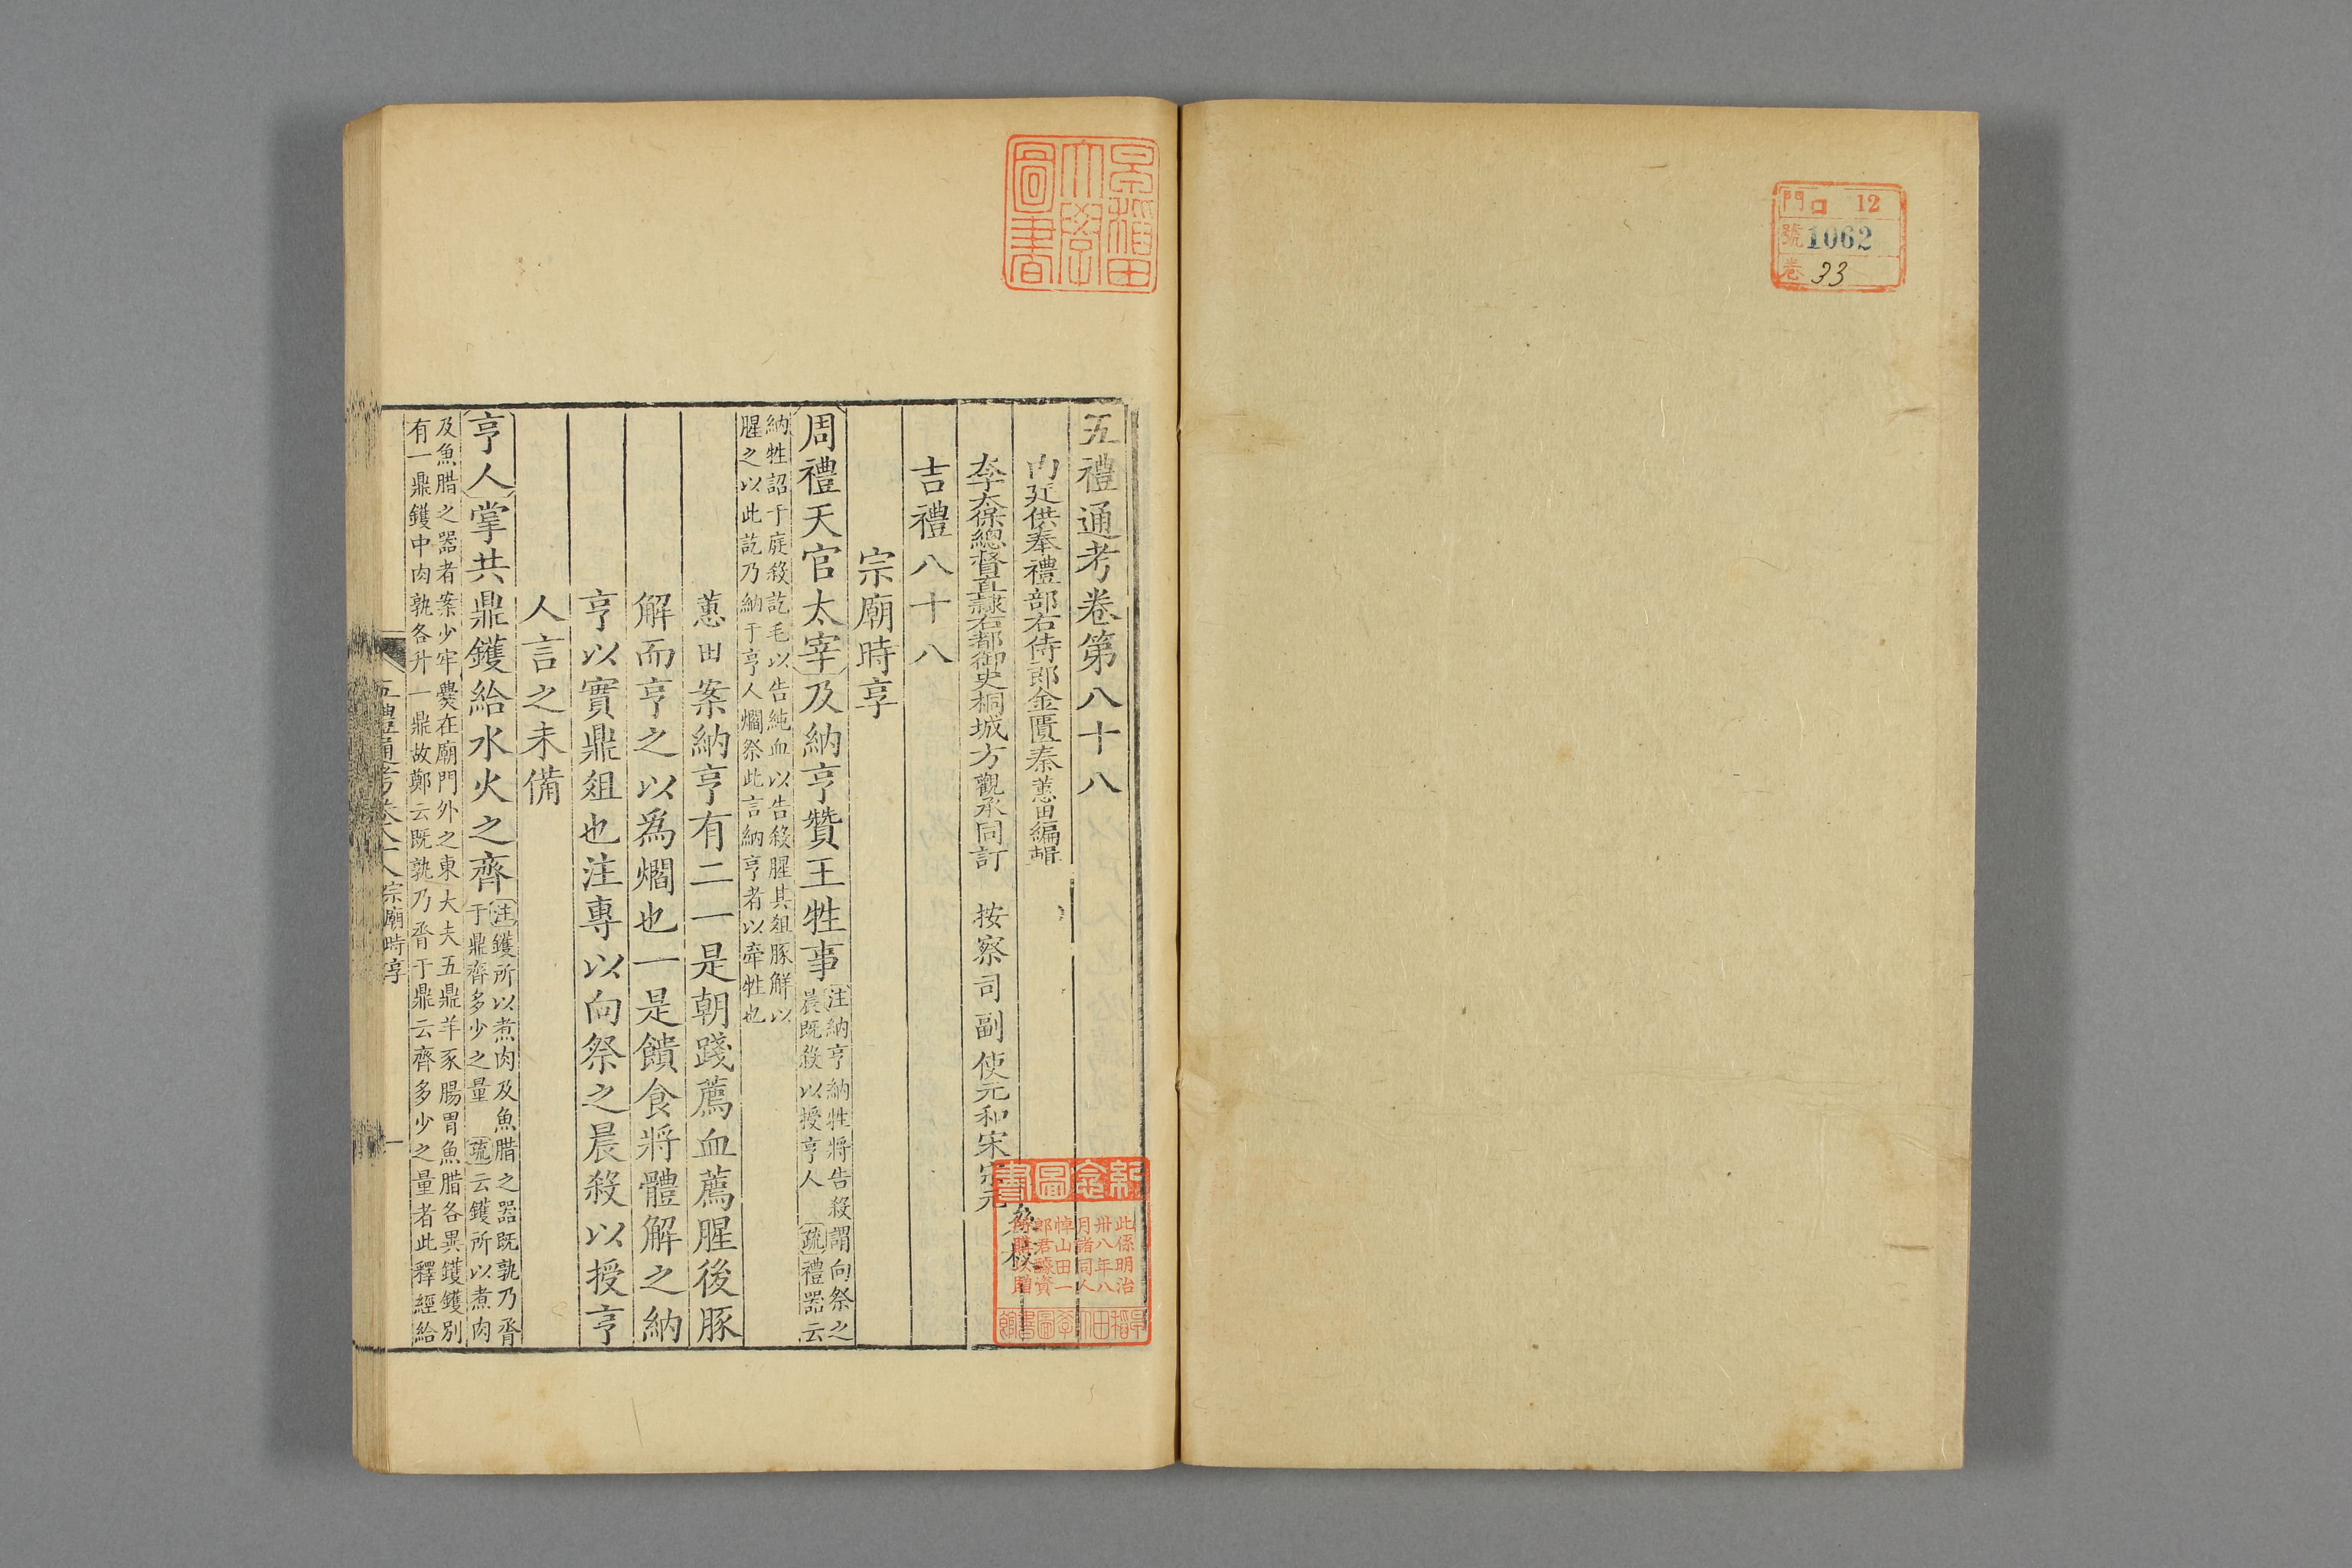 門 口 12
號 1062
卷 33
早稻田
大學
圖書
五禮通考卷第八十八
內廷供奉禮部右侍郎金匱秦蕙田編輯
太保總督直隸右都御史桐城方觀承同訂 按察司副使元和宋宗元參校
吉禮八十八
宗廟時享
周禮天官太宰及納亨贊王牲事注納亨納牲將告殺謂向祭之
晨既殺以授亨人 疏禮器云
納牲詔于庭殺訖毛以告純血以告殺腥其俎豚解以
腥之以此訖乃納于亨人爓祭此言納亨者以牽牲也
蕙田案納亨有二一是朝踐薦血薦腥後豚
解而亨之以為爓也一是饋食將體解之納
亨以實鼎俎也注專以向祭之晨殺以授亨
人言之未備
亨人掌共鼎鑊給水火之齊注鑊所以煮肉及魚腊之器既孰乃脀
于鼎齊多少之量 疏云鑊所以煮肉
及魚腊之器者案少牢爨在廟門外之東大夫五鼎羊豕腸胃魚腊各異鑊鑊別
有一鼎鑊中肉孰各升一鼎故鄭云既孰乃脀于鼎云齊多少之量者此釋經給
五禮通考卷八十八宗廟時享 一
紀念圖書
此係明治
卅八年八
月諸同人
悼山田一
郎君醵資
所購以贈
早稻田大學圖書館